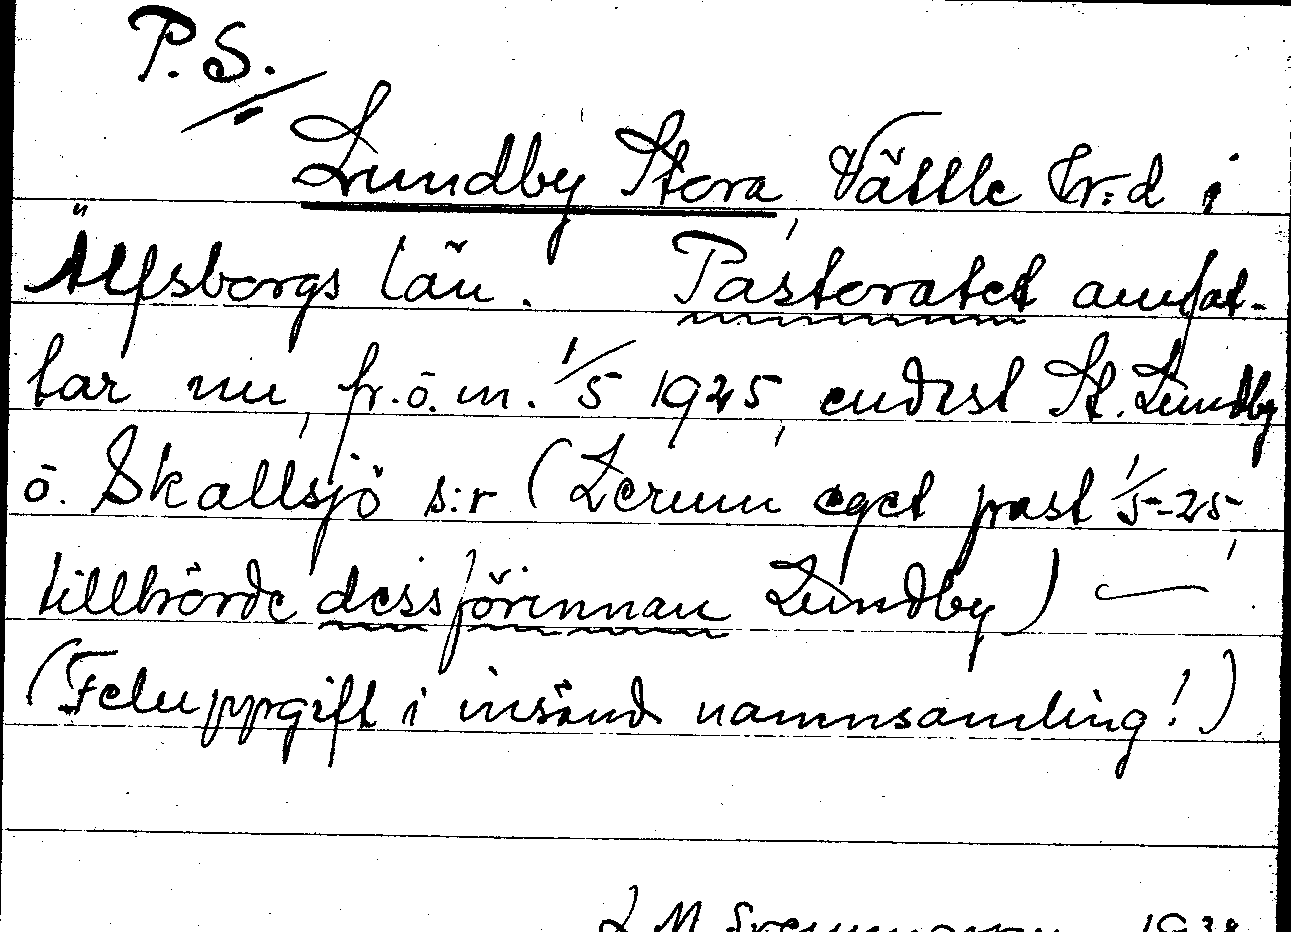 P.S.
Lundby Stora, Vättle hr:d i
Älfsborgs län. Pastoratet omfat-
tar nu, fr.o.m. 1/5 1925, endast St. Lundby
o. Skallsjö s:r (Lerum eget past 1/5-25,
tillhörde dessförinnan Lundby) —
(Feluppgift i insänd namnsamling!)
1938